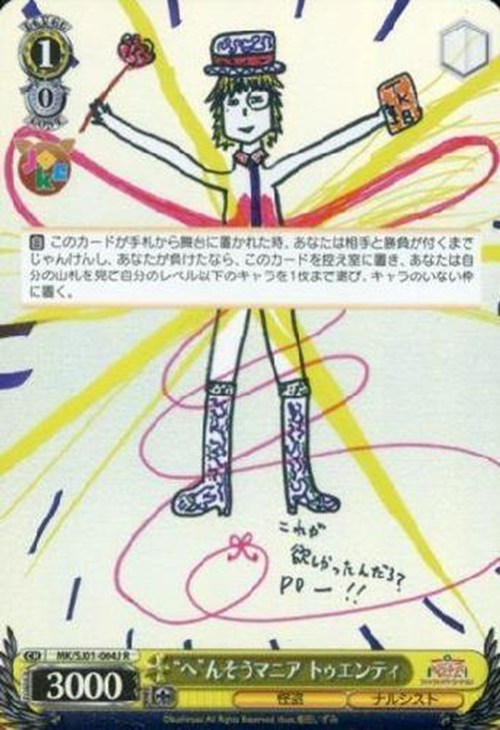 LEVEL
1
0
COST
JOKE
TK
自 このカードが手札から舞台に置かれた時、あなたは相手と勝負が付くまで
じゃんけんし、あなたが負けたなら、このカードを控え室に置き、あなたは自
分の山札を見て自分のレベル以下のキャラを1枚まで選び、キャラのいない枠
に置く。
これが
欲しかったんだろ?
PD ー!!
CH MK/SJ01-064J R
"へ"んそうマニア トゥエンティ
3000
怪盗 ナルシスト
All Rights Reserved